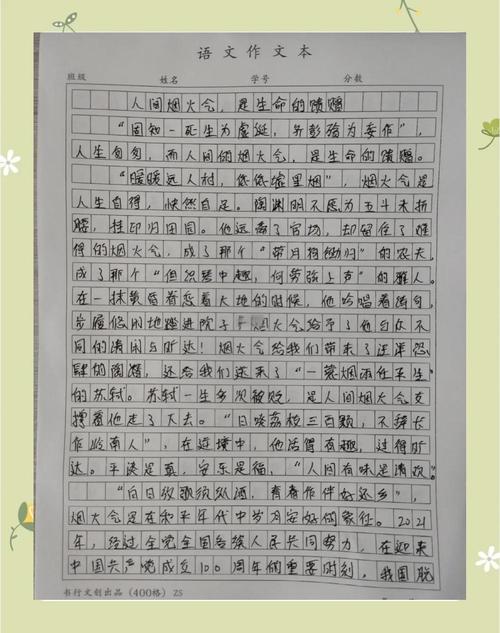 语文作文本
班级 姓名 学号 分数
人间烟火气，是生命的馈赠
“固知一死生为虚诞，齐彭殇为妄作”，
人生匆匆，而人间的烟火气，是生命的馈赠。
“暧暧远人村，依依墟里烟”，烟火气是
人生自得，怏然自足。陶渊明不愿为五斗米折
腰，挂印归田园。他远离了官场，却留住了难
得的烟火气，成了那个“带月荷锄归”的农夫，
成了那个“但识琴中趣，何劳弦上声”的雅人。
在一抹黄昏着大地的时候，他吟唱着诗句，
步履悠闲地踏进院子——烟火气给予了他与众不
同的清闲与旷达！烟火气给我们带来了汪洋恣
肆的陶潜，还给我们送来了“一蓑烟雨任平生”
的苏轼。苏轼一生多次被贬，是人间烟火气支
撑着他走了下去。“日啖荔枝三百颗，不辞长
作岭南人”，在逆境中，他活得有趣，过得旷
达。平淡是真，安乐是福，“人间有味是清欢”。
“白日放歌须纵酒，青春作伴好还乡”，
烟火气是在和平年代中岁月安好的象征。2021
年，经过全党全国各族人民共同努力，在迎来
中国共产党成立100周年的重要时刻，我国脱
书行文创出品（400格）ZS